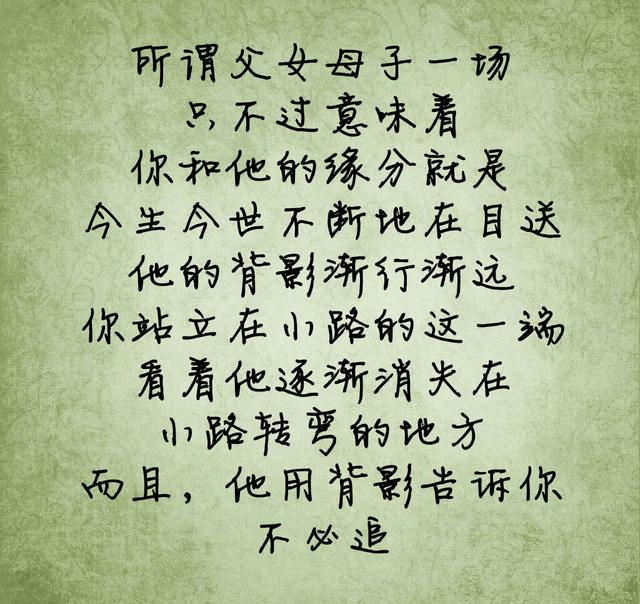 所谓父女母子一场
只不过意味着
你和他的缘分就是
今生今世不断地在目送
他的背影渐行渐远
你站立在小路的这一端
看着他逐渐消失在
小路转弯的地方
而且，他用背影告诉你
不必追